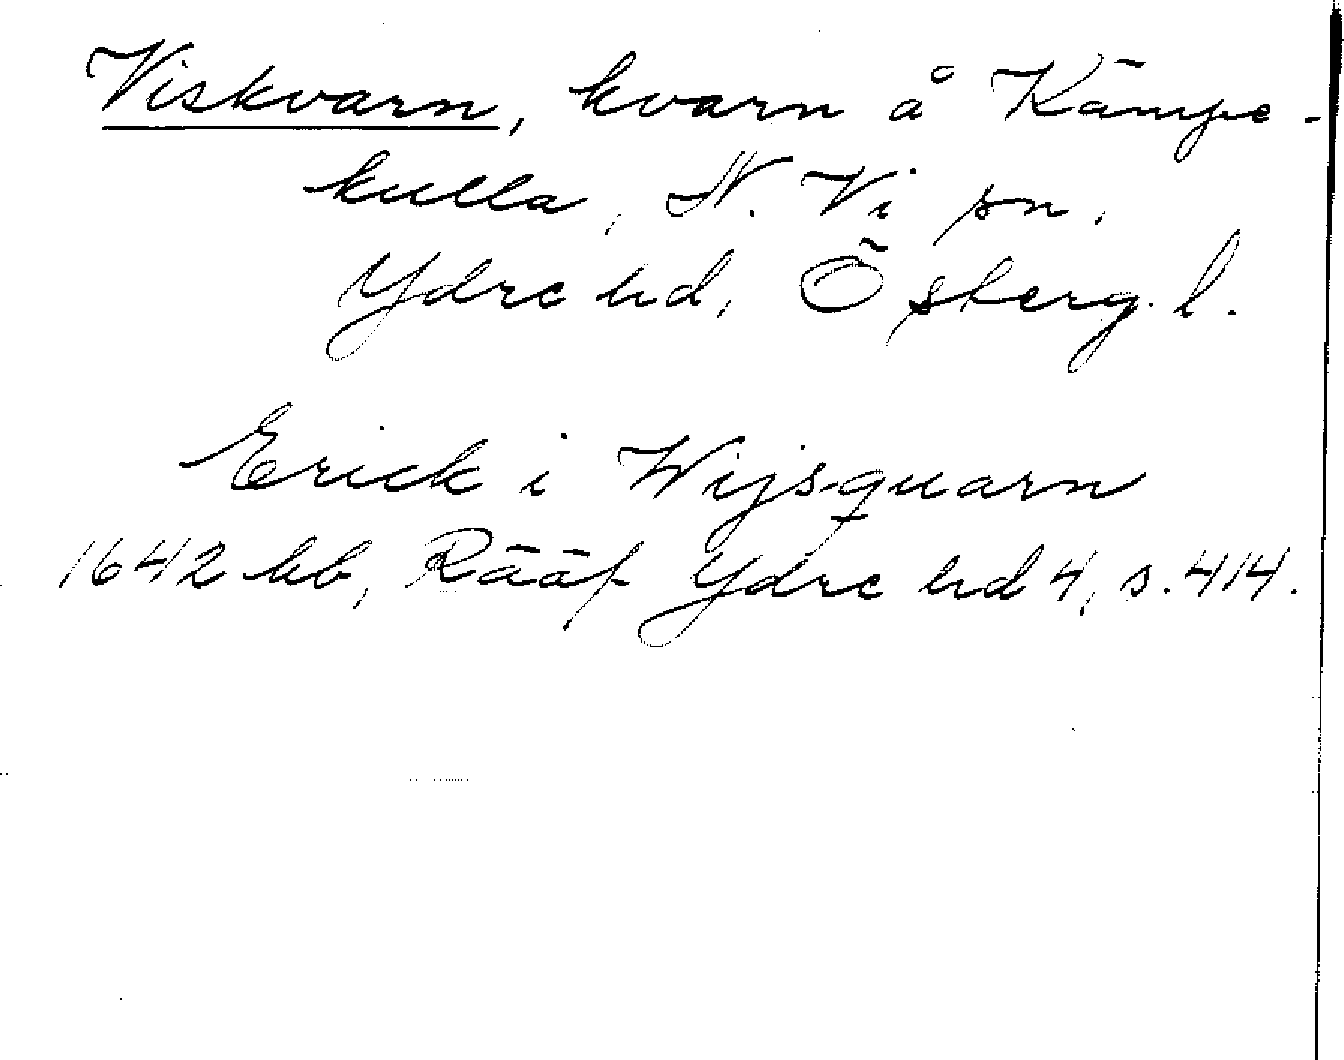 Viskvarn, kvarn å Kämpe-
kulla, N. Vi sn,
Ydre hd, Österg. l.
Erick i Wijsquarn
1642 hb, Rääf Ydre hd 4, s. 414.